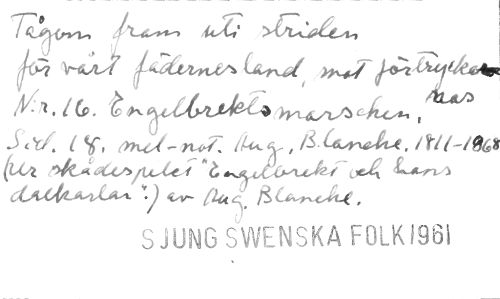 Tågom fram uti striden
för vårt fädernesland, mot förtryckar
nas
N:r. 16. Engelbrektsmarschen,
Sid. 18. mel-not. Aug. Blanche, 1811-1968
(Ur skådespelet "Engelbrekt och hans
dalkarlar":) av Aug. Blanche.
SJUNG SWENSKA FOLK 1961